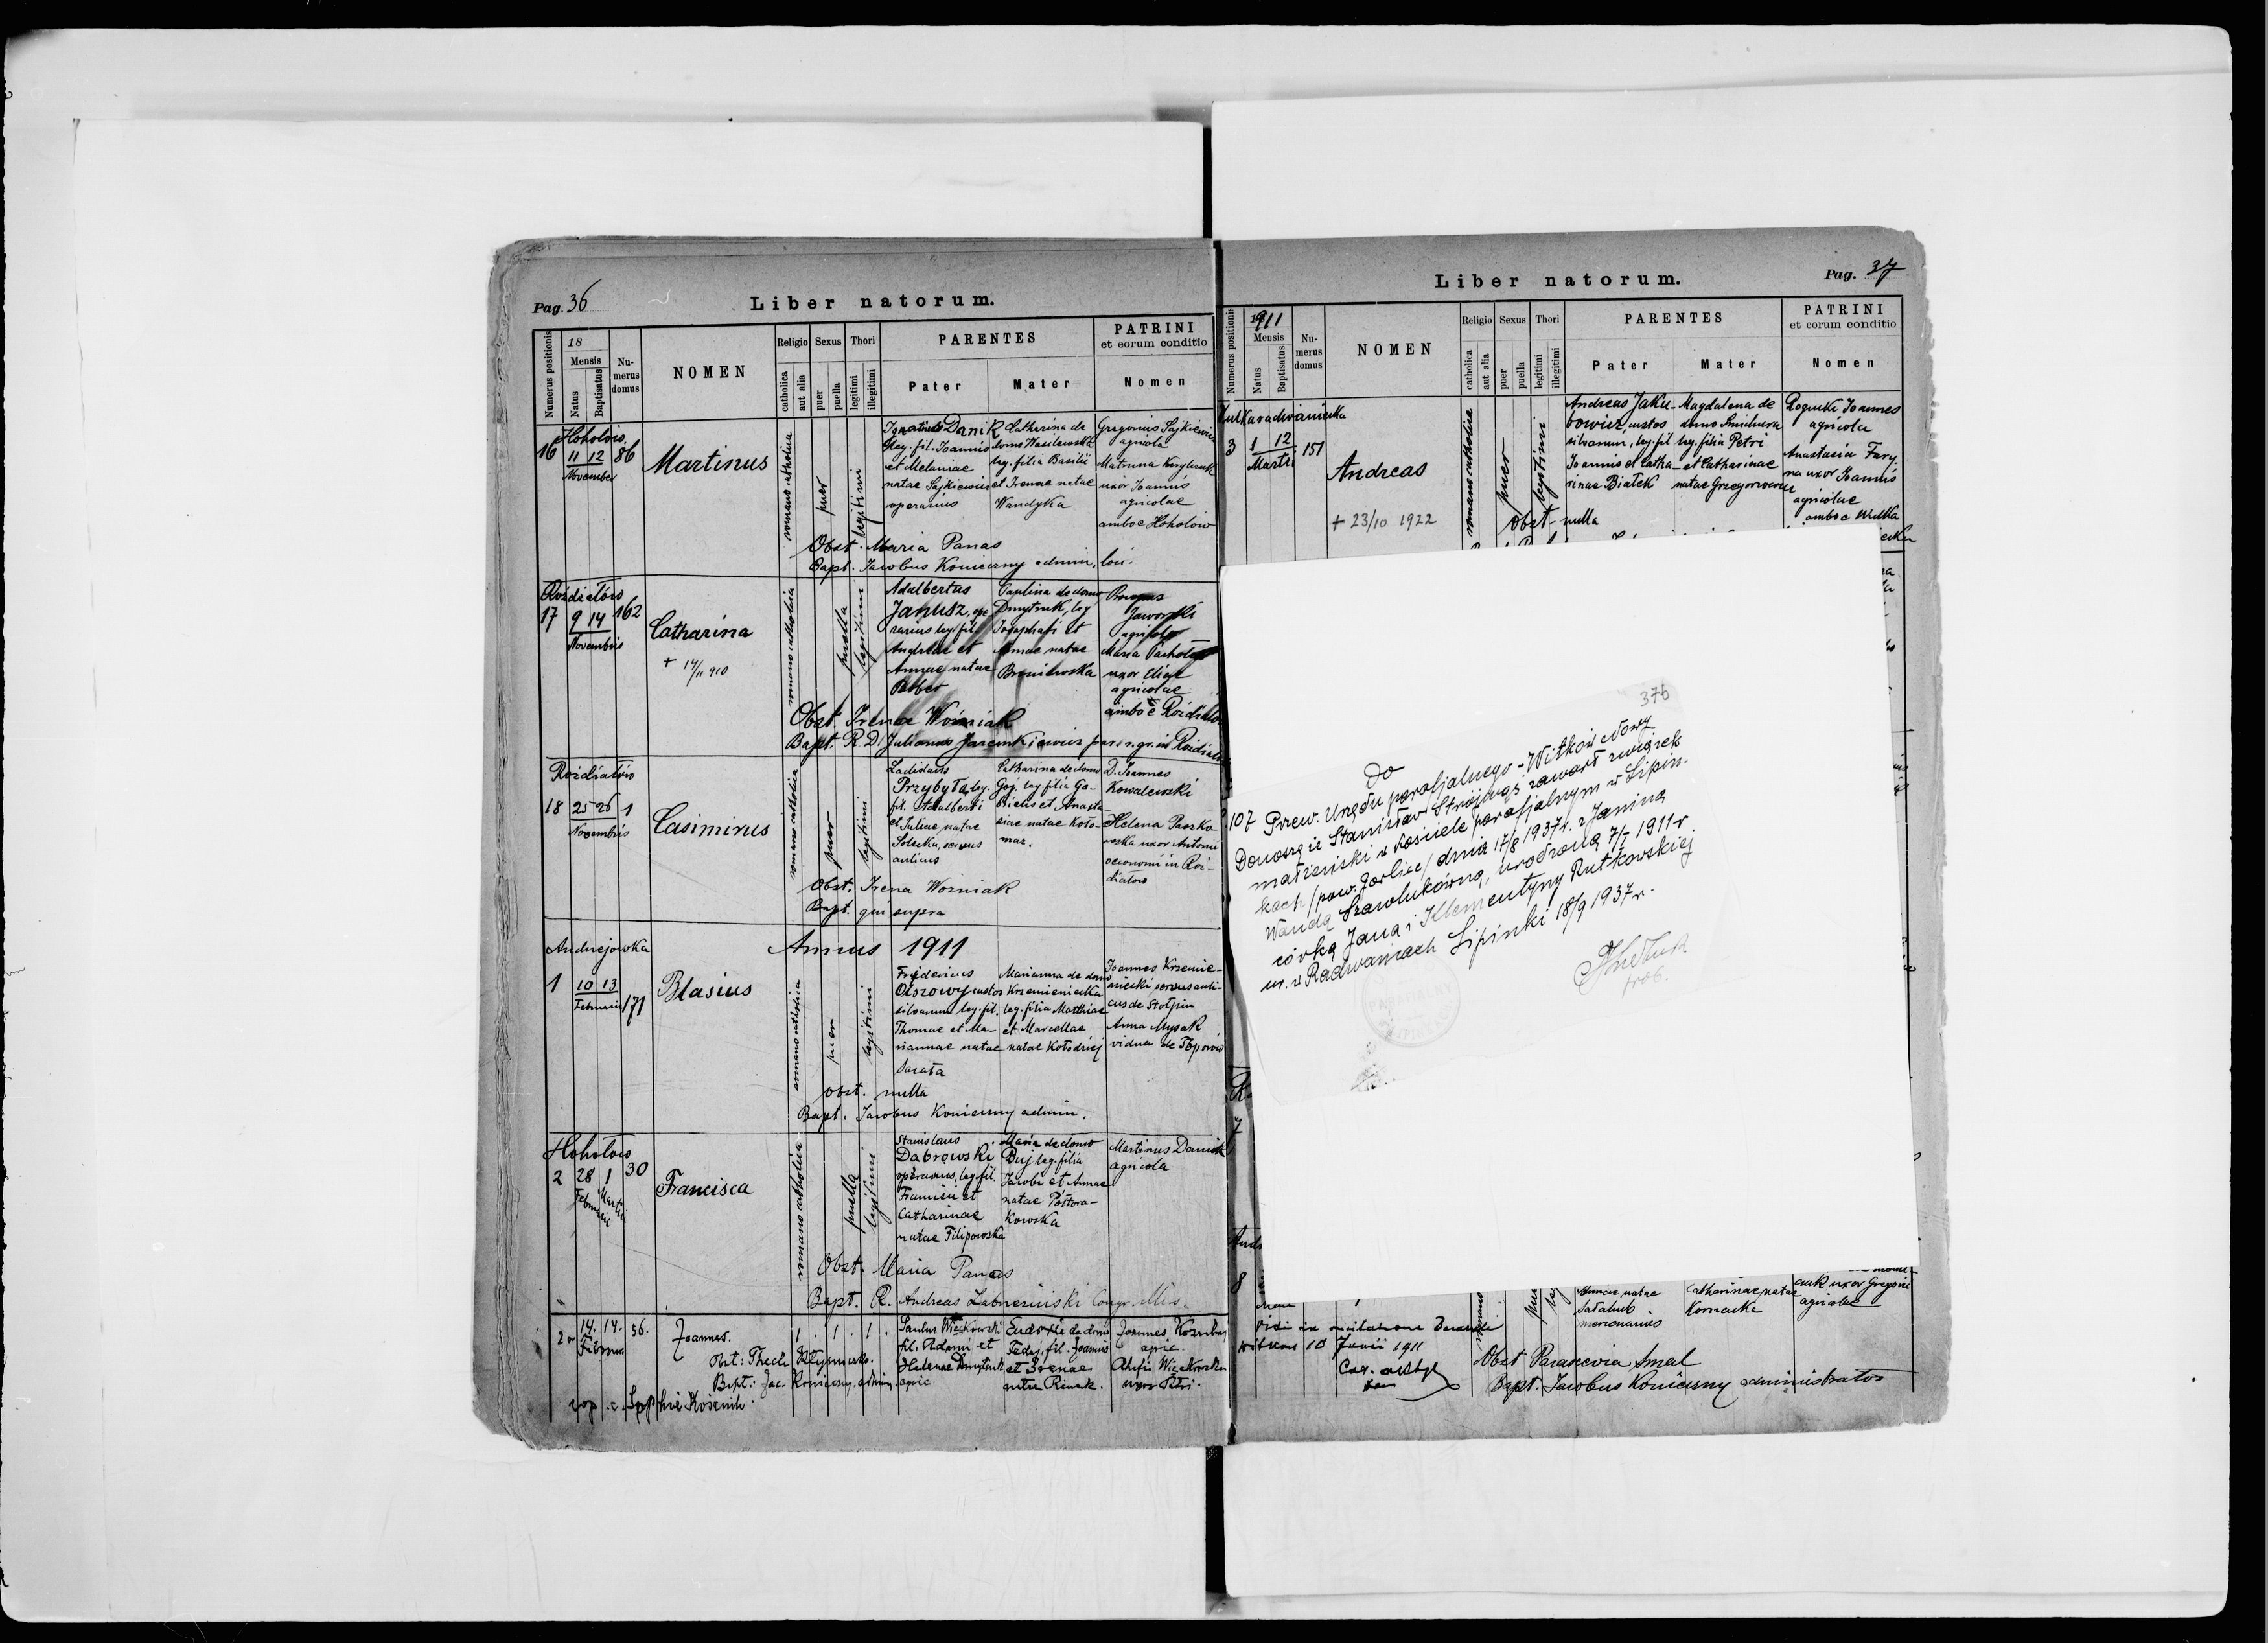 Pag. 36
Liber natorum.
Numerus positionis
18
Mensis
Natus
Baptisatus
Nu-
merus
domus
NOMEN
Religio
catholica
aut alia
Sexus
puer
puella
Thori
legitimi
illegitimi
PARENTES
Pater
Mater
PATRINI
et eorum conditio
Nomen
Hoholów
16
11 12
November
86
Martinus
romano catholica
puer
legitimi
Ignatius Danik
leg. fil. Joannis
et Melaniae
natae Sajkiewicz
operarius
Catharina de
domo Wasilewska
leg. filia Basilii
et Irenae natae
Wandyka
Gregorius Sajkiewicz
agricola
Matruna
uxor Joannis
agricolae
ambo e Hoholów
Obst. Maria Panas
Bapt. Jacobus Konieczny admin. loci.
Rozdiałów
17
9 14
Novembris
162
Catharina
+ 14/11 910
romano catholica
puella
legitimi
Adalbertus
Janusz, ope-
rarius leg. fil.
Andreae et
Annae natae
Paulina de domo
Dmytruk, leg
et
Annae natae
Broniłowska
Jaworski
agricola
Maria
uxor Eliae
agricolae
ambo e Rozdiałów
Obst. Irena Woźniak
Bapt. R. D. Julianus
Rozdiałów
18
25 26
Novembris
1
Casimirus
romano catholica
puer
legitimi
Ladislaus
Przybyła, leg.
fil. Adalberti
et Juliae natae
Solecka, servus
aulicus
Catharina de domo
Goj, leg filia Ga-
brielis et Anasta-
siae natae Koło-
maz.
D. Joannes
Kowalewski
Helena Paszko-
wska uxor Antonii
oeconomi in Roz-
diałów
Obst. Irena Woźniak
Bapt. qui supra
Annus 1911
Andrejowka
1
10 13
Februarii
171
Blasius
romano catholica
puer
legitimi
Fridericus
Olszowy custos
silvarum leg. fil.
Thomae et Ma-
riannae natae
Sarata
Marianna de domo
Krzemieniecka
leg. filia Matthiae
et Marcellae
natae Kołodziej
Joannes Krzemie-
niecki servus auli-
cus de Stołpin
Anna Mysak
vidua de Toporów
Obst. nulla
Bapt. Jacobus Konieczny admin.
Hohołów
2
28 1
Februarii Martii
30
Francisca
romano catholica
puella
legitimi
Stanislaus
Dąbrowski
operarius, leg. fil.
Francisci et
Catharinae
natae Filipowska
Maria de domo
Buj leg. filia
Jacobi et Annae
natae Półtora-
kowska
Martinus Daniuk
agricola
Obst. Maria Panas
Bapt. R. Andreas Congr. Mis.
2a
14. 14.
56.
Joannes.
1. 1. 1.
Paulus Więckowski
fil. Adami et
Helenae Dmytruk
agric.
de domo
Fedaj, fil. Joannis
et Irenae
Joannes
agric.
Więckowska
uxor Petri.
Obst: Thecla
Bapt: Jac. Konieczny. admin.
Pag. 37
Liber natorum.
Numerus positionis
1911
Mensis
Natus
Baptisatus
Nu-
merus
domus
NOMEN
Religio
catholica
aut alia
Sexus
puer
puella
Thori
legitimi
illegitimi
PARENTES
Pater
Mater
PATRINI
et eorum conditio
Nomen
3
1 12
Martii
151
Andreas
+ 23/10 1922
romano catholica
puer
legitimi
Andreas Jaku-
bowicz, custos
silvarum, leg. fil
Joannis et Catha-
rinae Białek
Magdalena de
domo
leg. filia Petri
et Catharinae
natae Grzegorzewicz
Rogucki Joannes
agricola
Anastasia Fary-
na uxor Joannis
agricolae
ambo e Wulka
Obst. nulla
376
Do
107 Przew. Urzędu parafjalnego - Witków Nowy
Donoszę że Stanisław Strójwąs zawarł związek
małżeński w kościele parafjalnym w Lipin-
kach /pow. Gorlice/ dnia 17/8 1937r. z Janiną
Wandą Szawlukówną, urodzoną 7/7 1911 r
córką Jana i Klementyny Rutkowskiej
ur. w Radwańcach Lipinki 18/9 1937 r.
prob.
7
8
natae
mercenarius
Catharinae natae
uxor Gregorii
agricolae
10 Junii 1911
Obst Parascevia Smal
Bapt. Jacobus Konieczny administrator